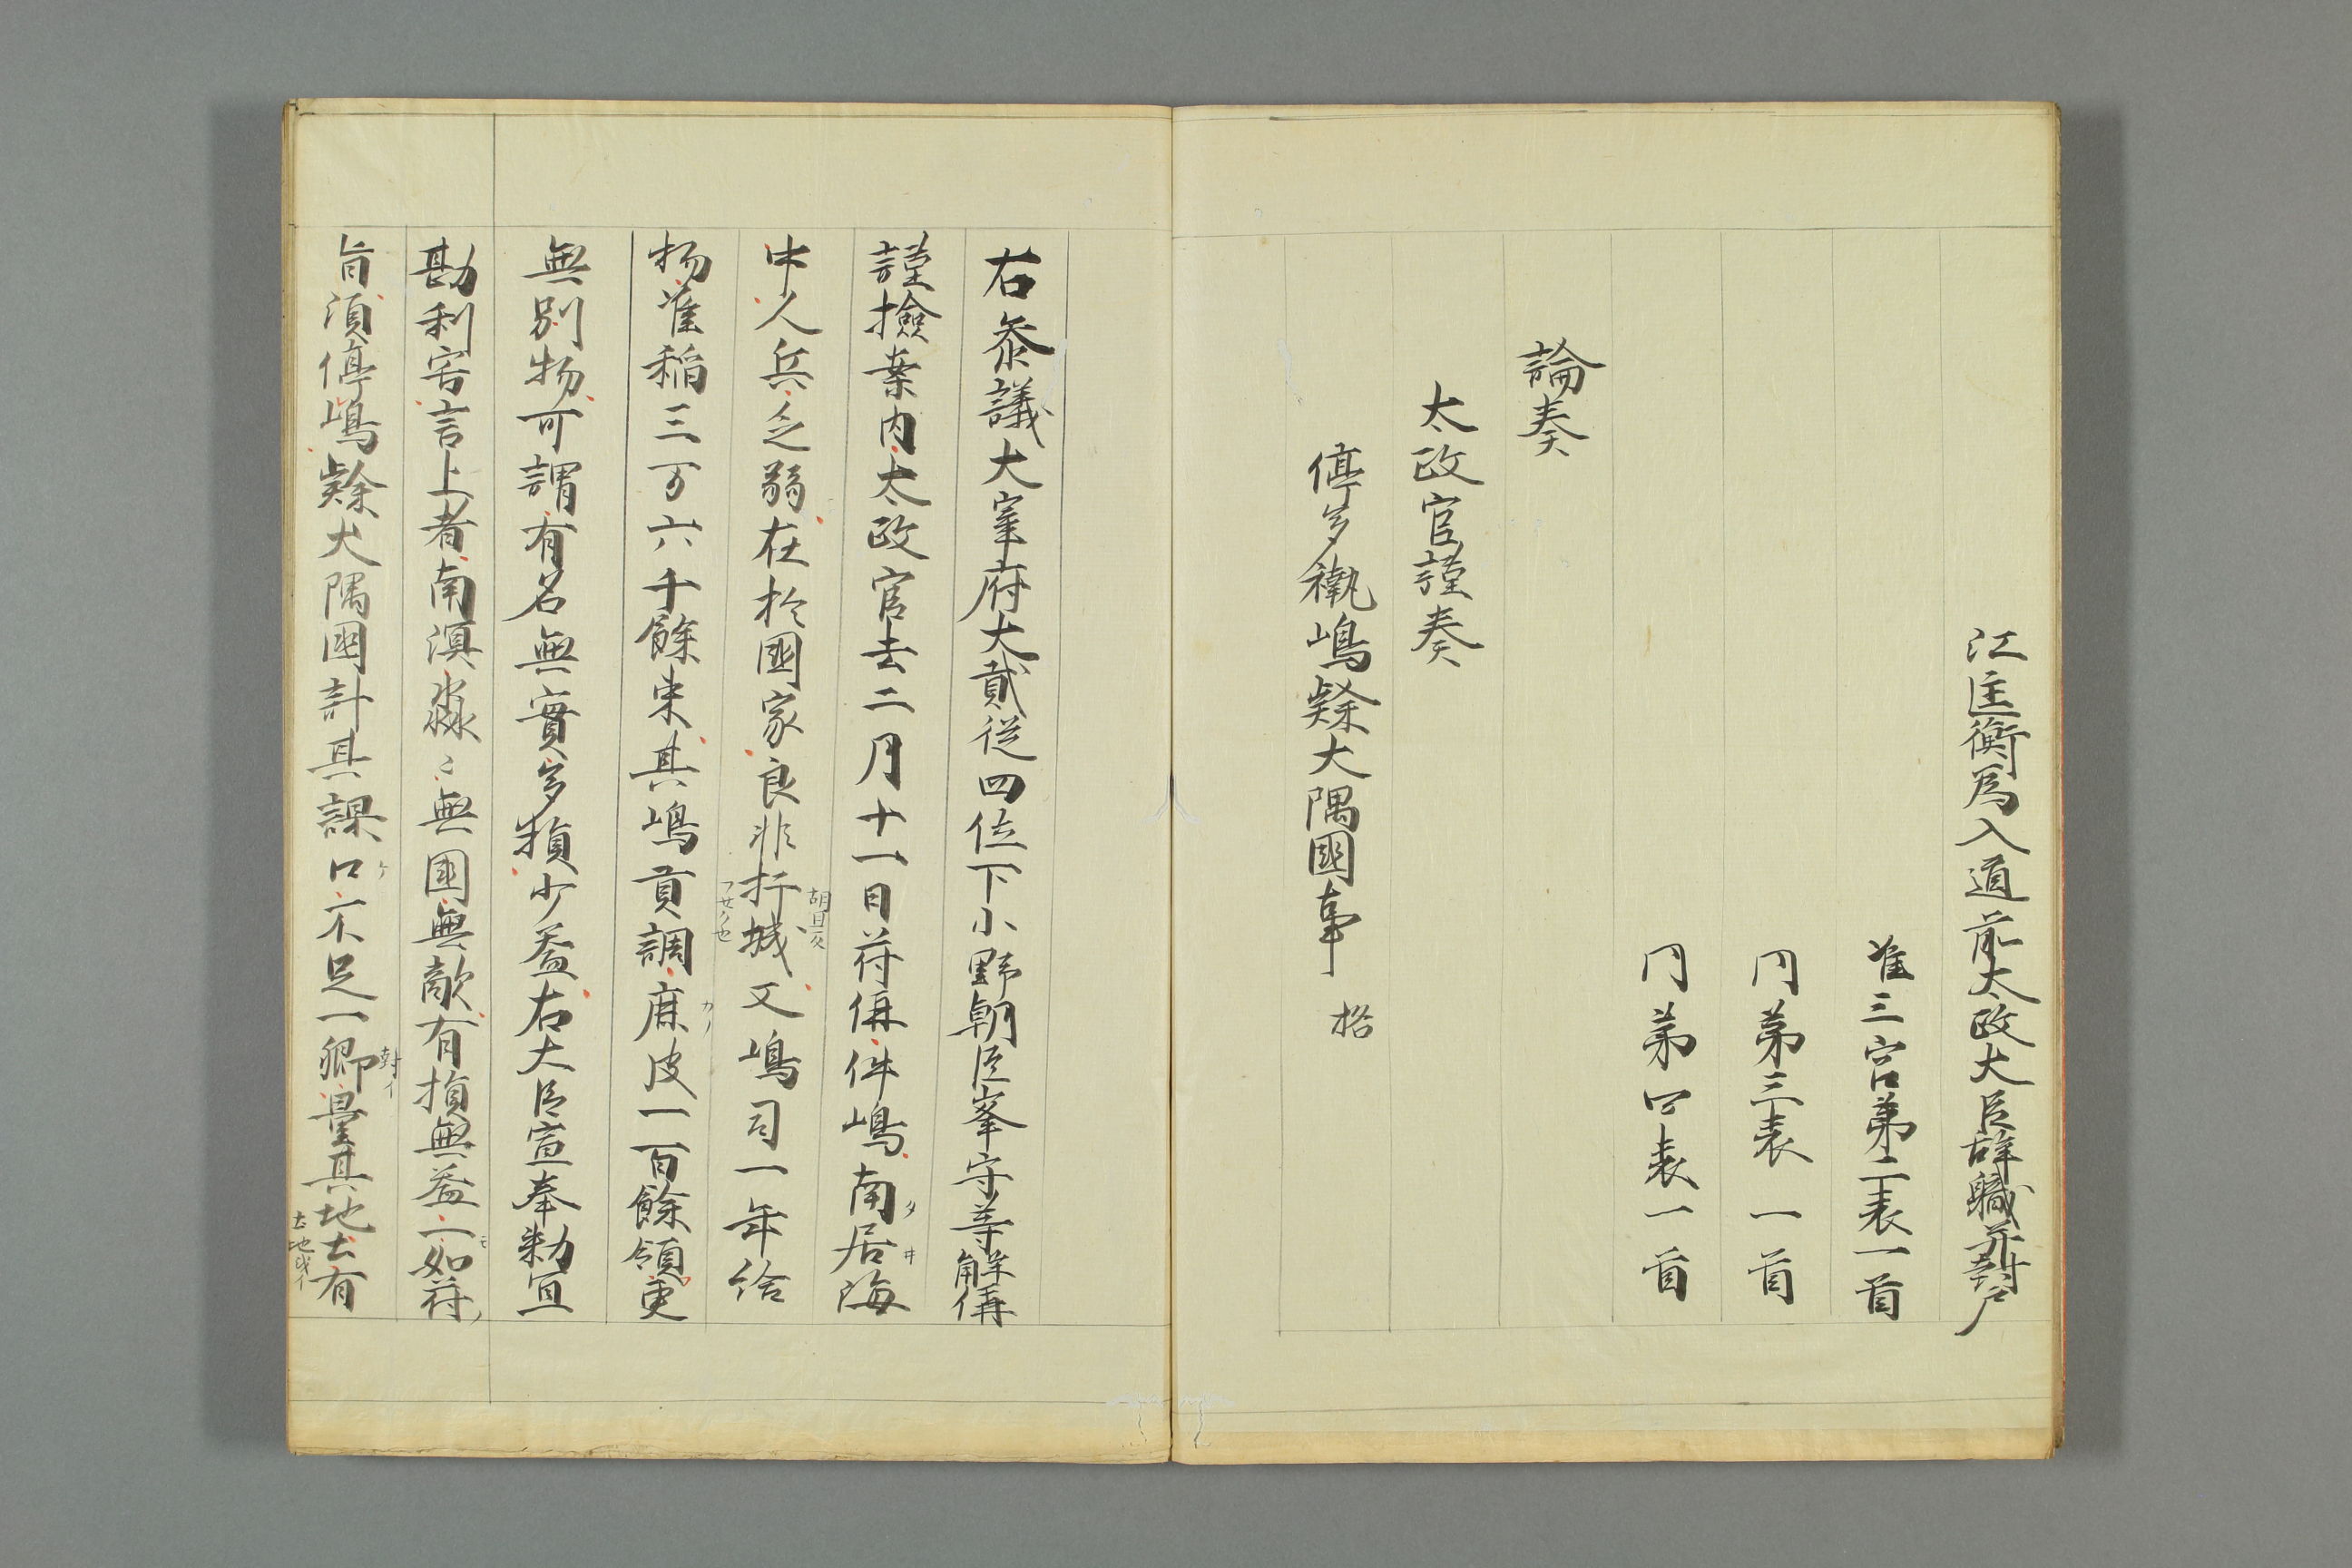 江匡衡為入道前太政大臣辞職并封戸
准三宮第二表一首
円第三表一首
円第四表一首
論奏
太政官謹奏
停多褹嶋隸大隅國事 格
右叅議大宰府大貳従四位下小野朝臣峯守等解偁
謹撿案内太政官去二月十一日苻偁件嶋南居海
中人兵乏弱在於國家良非扞城又嶋司一年給
物准稲三万六千餘束其嶋貢調鹿皮一百餘領更
無別物可謂有名無實多損少益右大臣宣奉勅宜
勘利害言上者南溟淼〻無國無敵有損無益一如苻
旨須停嶋隸大隅國計其課口不足一郷量其地土有
胡旦反
フセク也
封イ
土地或イ